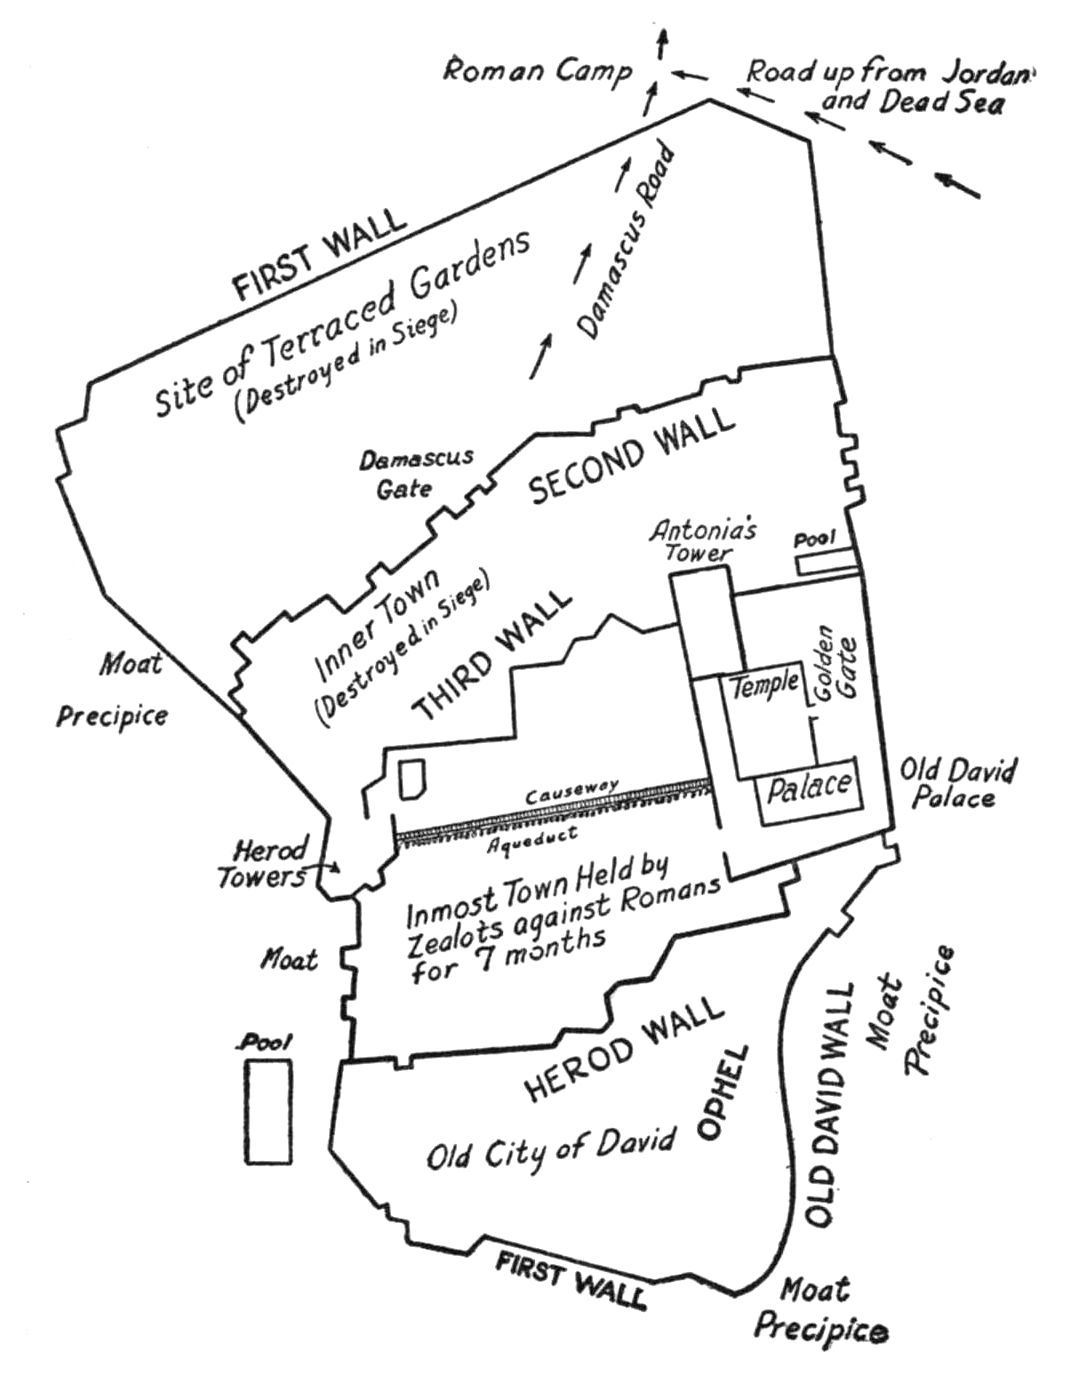 Roman Camp
Road up from Jordan
and Dead Sea
Damascus Road
FIRST WALL
Site of Terraced Gardens
(Destroyed in Siege)
Damascus
Gate
SECOND WALL
Antonia's
Tower
Pool
Inner Town
(Destroyed in Siege)
THIRD WALL
Moat
Precipice
Temple
Golden
Gate
Palace
Old David
Palace
Causeway
Aqueduct
Herod
Towers
Inmost Town Held by
Zealots against Romans
for 7 months
Moat
Pool
HEROD WALL
OPHEL
OLD DAVID WALL
Moat
Precipice
Old City of David
FIRST WALL
Moat
Precipice